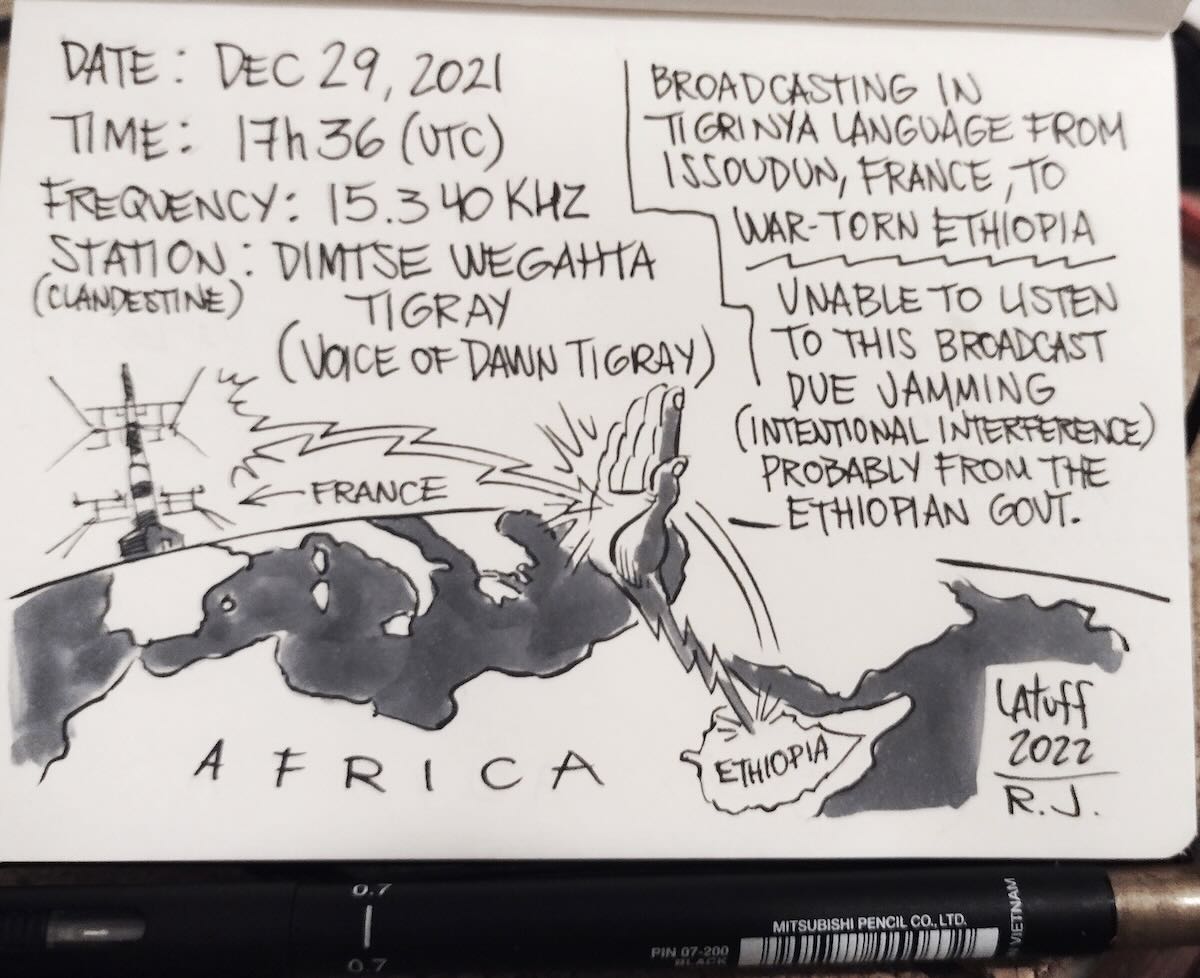 DATE: DEC 29, 2021
TIME: 17h36 (UTC)
FREQUENCY: 15.340 KHZ
STATION: DIMTSE WEGAHTA
(CLANDESTINE)
TIGRAY
(VOICE OF DAWN TIGRAY)
BROADCASTING IN
TIGRINYA LANGUAGE FROM
ISSOUDUN, FRANCE, TO
WAR-TORN ETHIOPIA
UNABLE TO LISTEN
TO THIS BROADCAST
DUE JAMMING
(INTENTIONAL INTERFERENCE)
PROBABLY FROM THE
ETHIOPIAN GOVT.
FRANCE
AFRICA
ETHIOPIA
LATUFF
2022
R.J.
0.7
0.7
MITSUBISHI PENCIL CO., LTD.
PIN 07-200
BLACK
VIETNAM